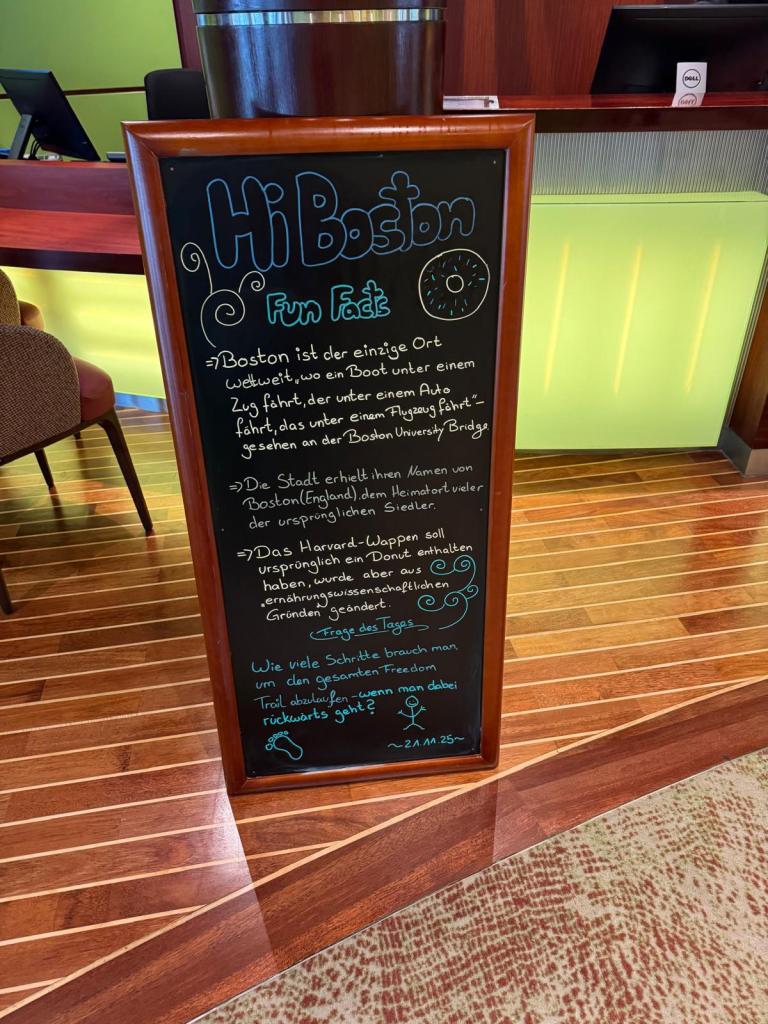 DELL
Hi Boston
Fun Facts
=> Boston ist der einzige Ort
weltweit, wo ein Boot unter einem
Zug fährt, der unter einem Auto
fährt, das unter einem Flugzeug fährt" –
gesehen an der Boston University Bridge.
=> Die Stadt erhielt ihren Namen von
Boston (England), dem Heimatort vieler
der ursprünglichen Siedler.
=> Das Harvard-Wappen soll
ursprünglich ein Donut enthalten
haben, wurde aber aus
"ernährungswissenschaftlichen
Gründen" geändert.
Frage des Tages
Wie viele Schritte brauch man,
um den gesamten Freedom
Trail abzulaufen – wenn man dabei
rückwärts geht?
~21.11.25~